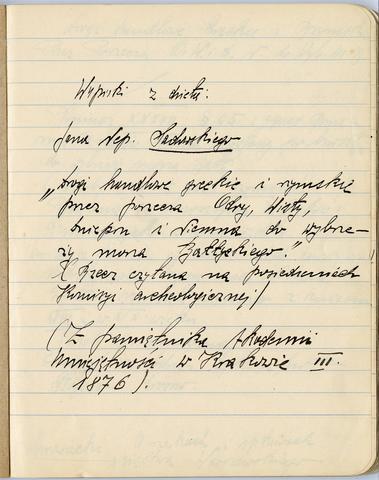 Wypiski z dzieła:
Jana Nep. Sadowskiego
„Drogi handlowe greckie i rzymskie
przez porzecza Odry, Wisły,
Dniepru i Niemna do wybrze-
ży morza Bałtyckiego."
(Rzecz czytana na posiedzeniach
Komisji archeologicznej)
(Z pamiętnika Akademii
Umiejętności w Krakowie III.
1876).